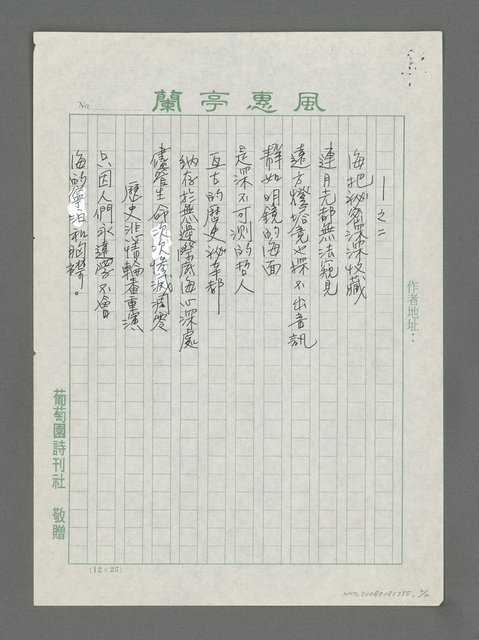 風惠亭蘭
No.
作者地址：
—之二
海把秘密深深收藏
連月光都無法窺見
遠方燈塔竟也探不出音訊
靜如明鏡的海面
是深不可測的哲人
亙古的歷史秘辛都
納存於無邊際底海心深處
儘管生命次次慘滅凋零
歷史悲情輪番重演
只因人們永遠學不會
海的寧泊和胸襟。
葡萄園詩刊社 敬贈
(12×25)